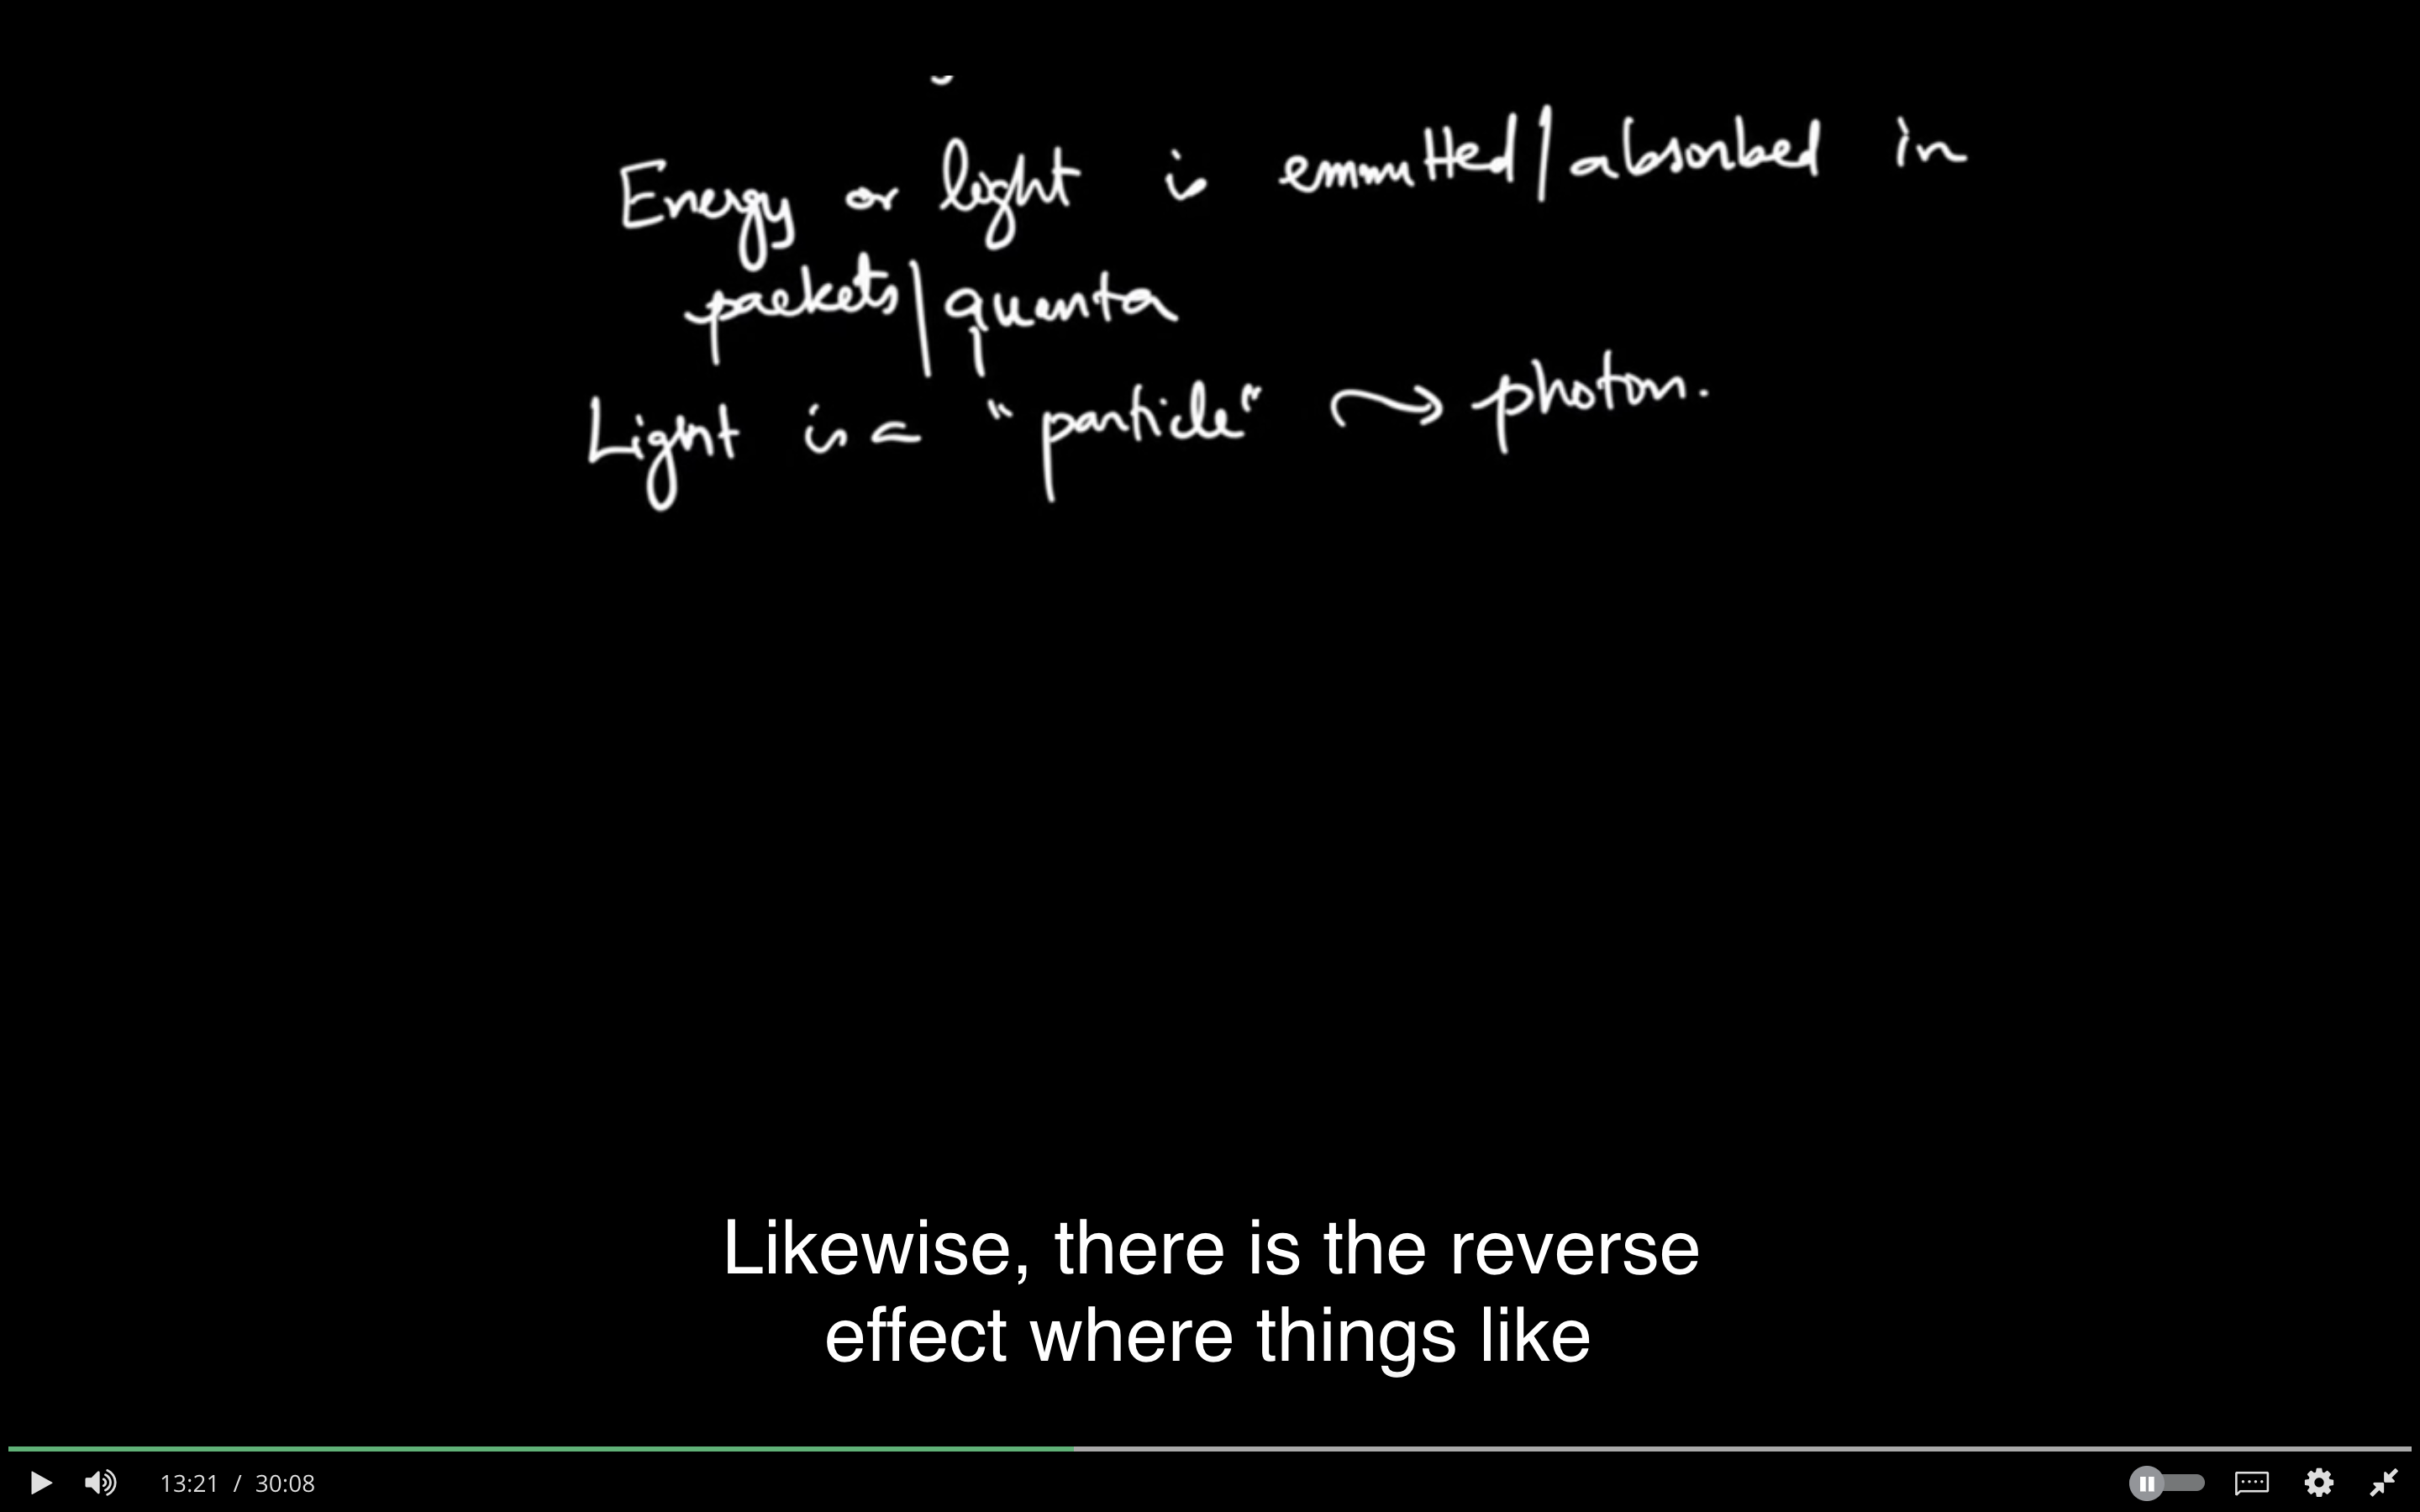 Energy or light is emmitted/absorbed in
packets/quanta
Light is a "particle" → photon.
Likewise, there is the reverse
effect where things like
13:21 / 30:08